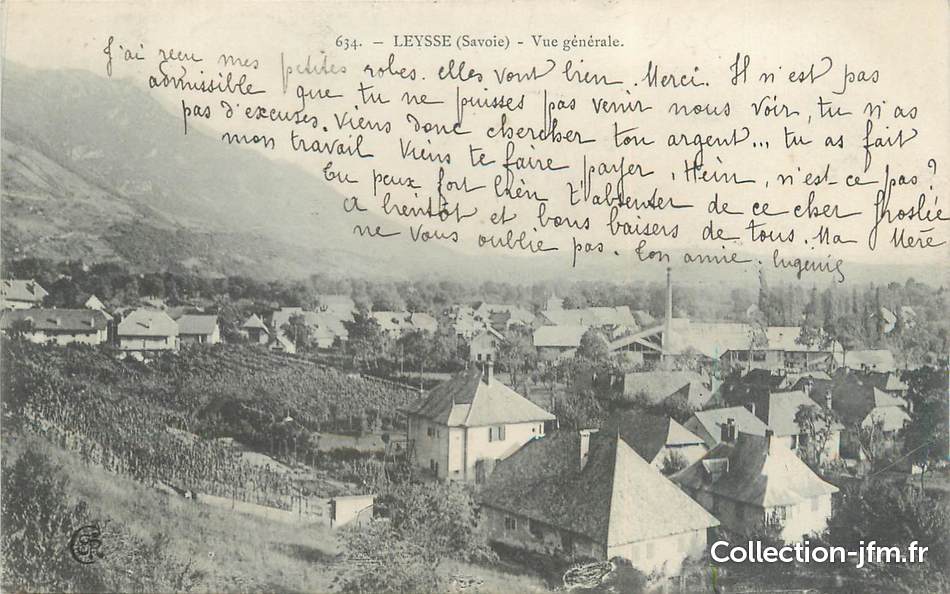 634. - LEYSSE (Savoie) - Vue générale.
J'ai reçu mes petites robes. elles vont bien. Merci. Il n'est pas
admissible que tu ne puisses pas venir nous voir, tu n'as
pas d'excuses. Viens donc chercher ton argent... tu as fait
mon travail viens te faire payer, Hein, n'est-ce pas?
Tu peux fort bien t'absenter de ce cher
A bientôt et bons baisers de tous. Ma Mère
ne vous oublie pas. Ton amie. Eugenie
CR
Collection-jfm.fr